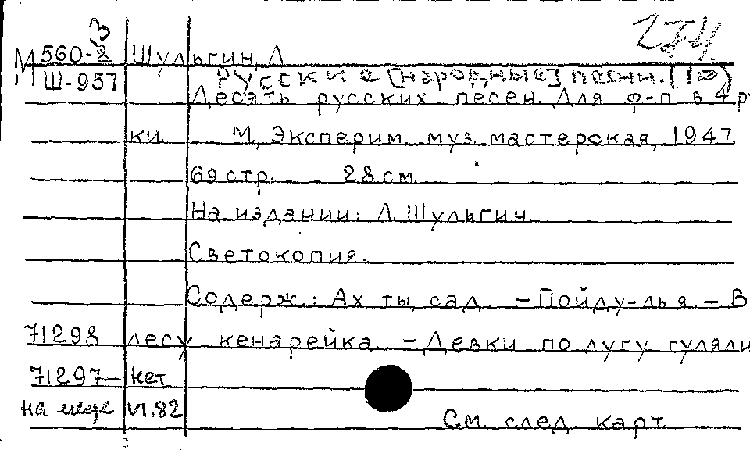 2Т4
3
М 560-2 Шульгин, Л
Ш-957 Русские [народные] песни. (10)
Десять русских песен. Для ф-п в 4 ру
ки. М, Эксперим. муз. мастерская, 1947
69 стр. 28 см.
На издании: Л. Шульгин
Светокопия.
Содерж.: Ах ты, сад. – Пойду-лья – В
71298 лесу кенарейка – Девки по лугу гуляли
71297 – нет
на месте VI.82
См. след. карт.